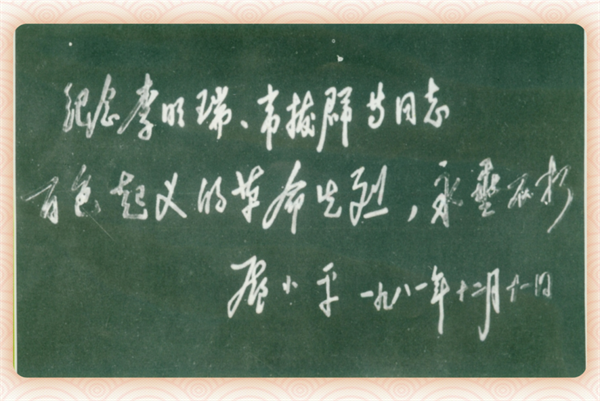 纪念李明瑞、韦拔群等同志
百色起义的革命先烈，永垂不朽
邓小平 一九八一年十二月十一日